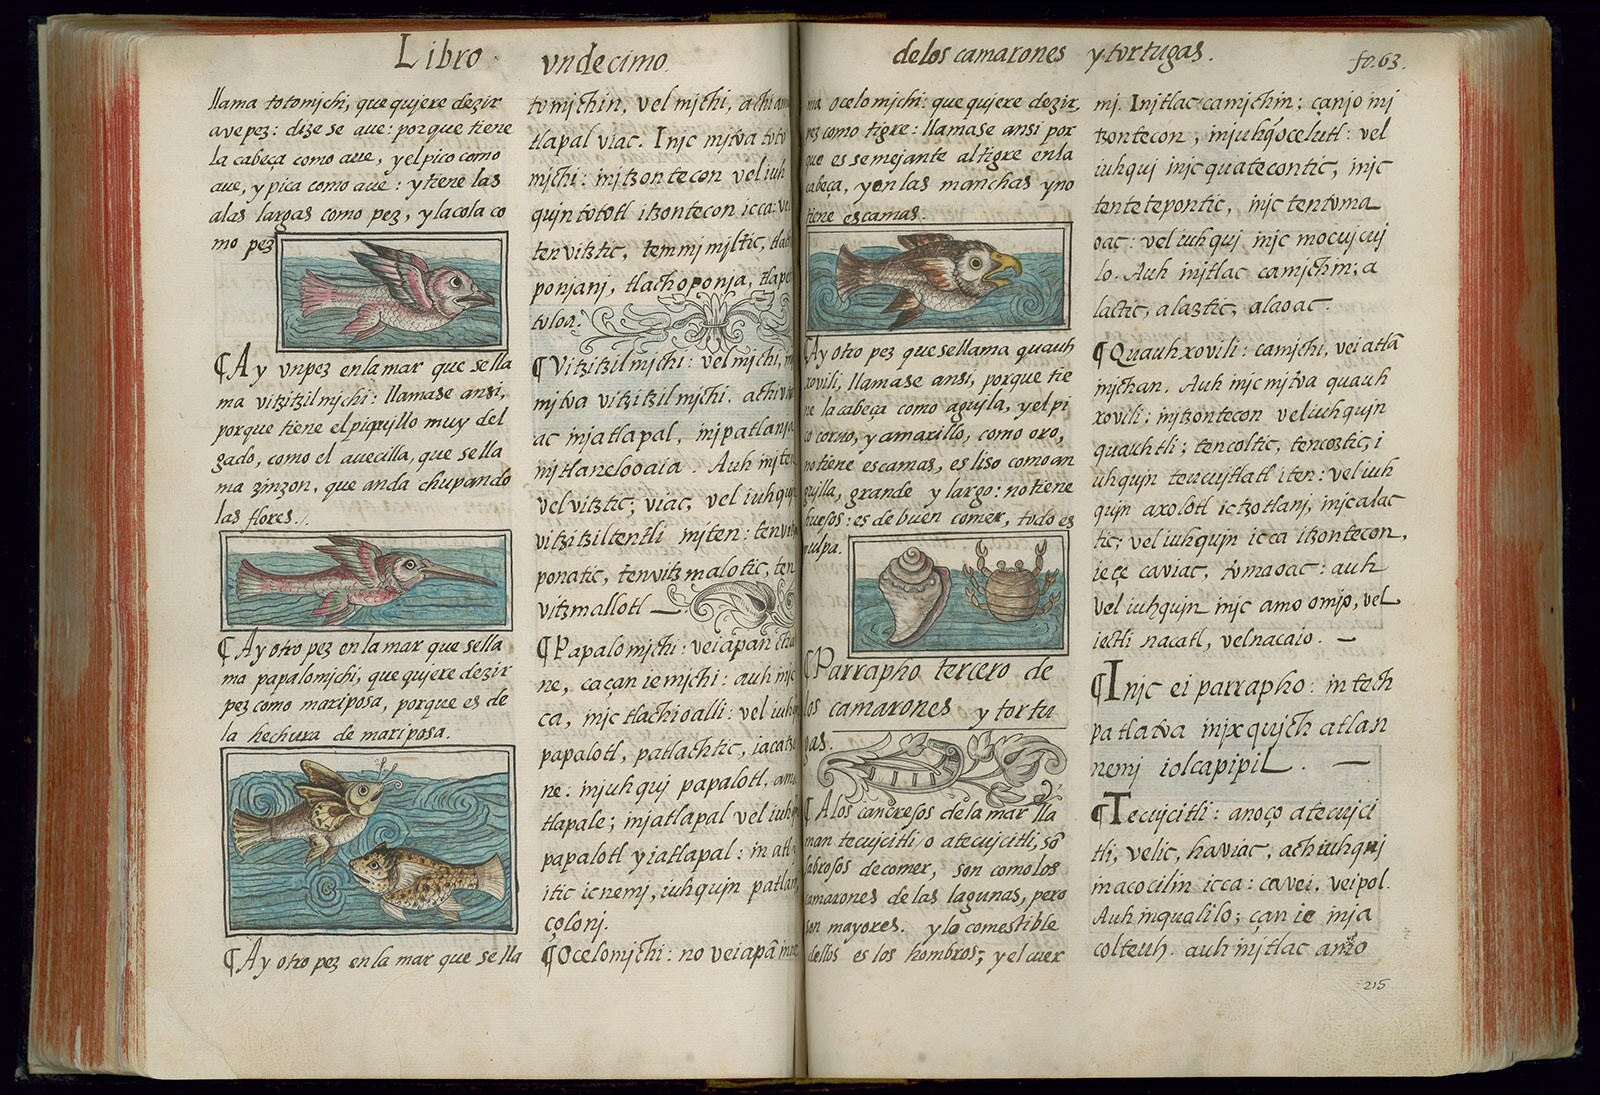 Libro
vndecimo.
llama totomjchi, que qujere dezir
ave pez: dize se aue: porque tiene
la cabeça como aue, y el pico como
aue, y pica como aue: y tiene las
alas largas como pez, y la cola co
mo pez
¶ Ay vn pez en la mar que se lla
ma vitzitzilmjchi: llamase ansi,
porque tiene el piqujllo muy del
gado, como el auecilla, que se lla
ma zinzon, que anda chupando
las flores.
¶ Ay otro pez en la mar que se lla
ma papalomjchi, que qujere dezir
pez como mariposa, porque es de
la hechura de mariposa.
¶ Ay otro pez en la mar que se lla
tomjchin, vel mjchi, achi
tlapal viac. Injc mjtva toto
mjchi: injtzontecon vel iuh
qujn tototl itzontecon icca:
tenvitztic, temmjmjltic,
ponjanj, tlachoponja,
tuloa.
¶ Vitzitzilmjchi: vel mjchi,
mjtva vitzitzilmjchi. achi
ac injatlapal, injpatlanja
injtlanelooaia. Auh injten
vel vitztic, viac, vel iuhquj
vitzitziltentli injten:
ponatic, tenvitzmalotic, ten
vitzmallotl —
¶ Papalomjchi: vei apan
ne, caçan ie mjchi: auh injc
ca, injc tlachioalli: vel iuh
papalotl, patlachtic,
ne: injuhquj papalotl,
tlapale; injatlapal vel iuh
papalotl yiatlapal: in atl
itic ic nemj, iuhqujn patlan
çolonj.
¶ Ocelomjchi: no vei apã
de los camarones
y tortugas.
fo. 63.
ma ocelomjchi: que qujere dezir,
pez como tigre: llamase ansi por
que es semejante al tigre en la
cabeça, y en las manchas y no
tiene escamas.
Ay otro pez que se llama quauh
xovili, llamase ansi, porque tie
ne la cabeça como aguila, y el pi
co corvo, y amarillo, como oro,
no tiene escamas, es liso como an
gujlla, grande y largo: no tiene
huesos: es de buen comer, todo es
pulpa.
¶ Parrapho tercero de
los camarones y tortu
gas.
¶ A los cangrejos de la mar lla
man tecujcitli o atecujcitli, sõ
sabrosos de comer, son como los
camarones de las lagunas, pero
son mayores. y lo comestible
dellos es los hombros; y el cuer
mj. Injtlac camjchin: çanjo inj
tzontecon, injuhqujocelutl: vel
iuhquj injc quatecontic, injc
tentetepontic, injc tentoma
oac: vel iuhquj injc mocujcuj
lo. Auh injtlac camjchin; a
lactic, alaztic, alaoac.
¶ Quauhxovili: camjchi, vei atlã
mjchan. Auh injc mjtva quauh
xovili: injtzontecon vel iuhqujn
quauhtli; tencoltic, tencoztic, i
uhqujn teucujtlatl iten: vel iuh
qujn axolotl ic tzotlanj, injc alac
tic; vel iuhqujn icca itzontecon,
ieçe caviac, tomaoac: auh
vel iuhqujn injc amo omjo, vel
iectli nacatl, velnacaio. —
¶ Injc ei parrapho: intech
patlatva injxqujch atlan
nemj iolcapipil. —
¶ Tecujcitli: anoço atecujci
tli, velic, haviac, achiuhquj
in acocilin icca: ca vei, veipol.
Auh inqualilo; çan ie inja
colteuh. auh injtlac
215